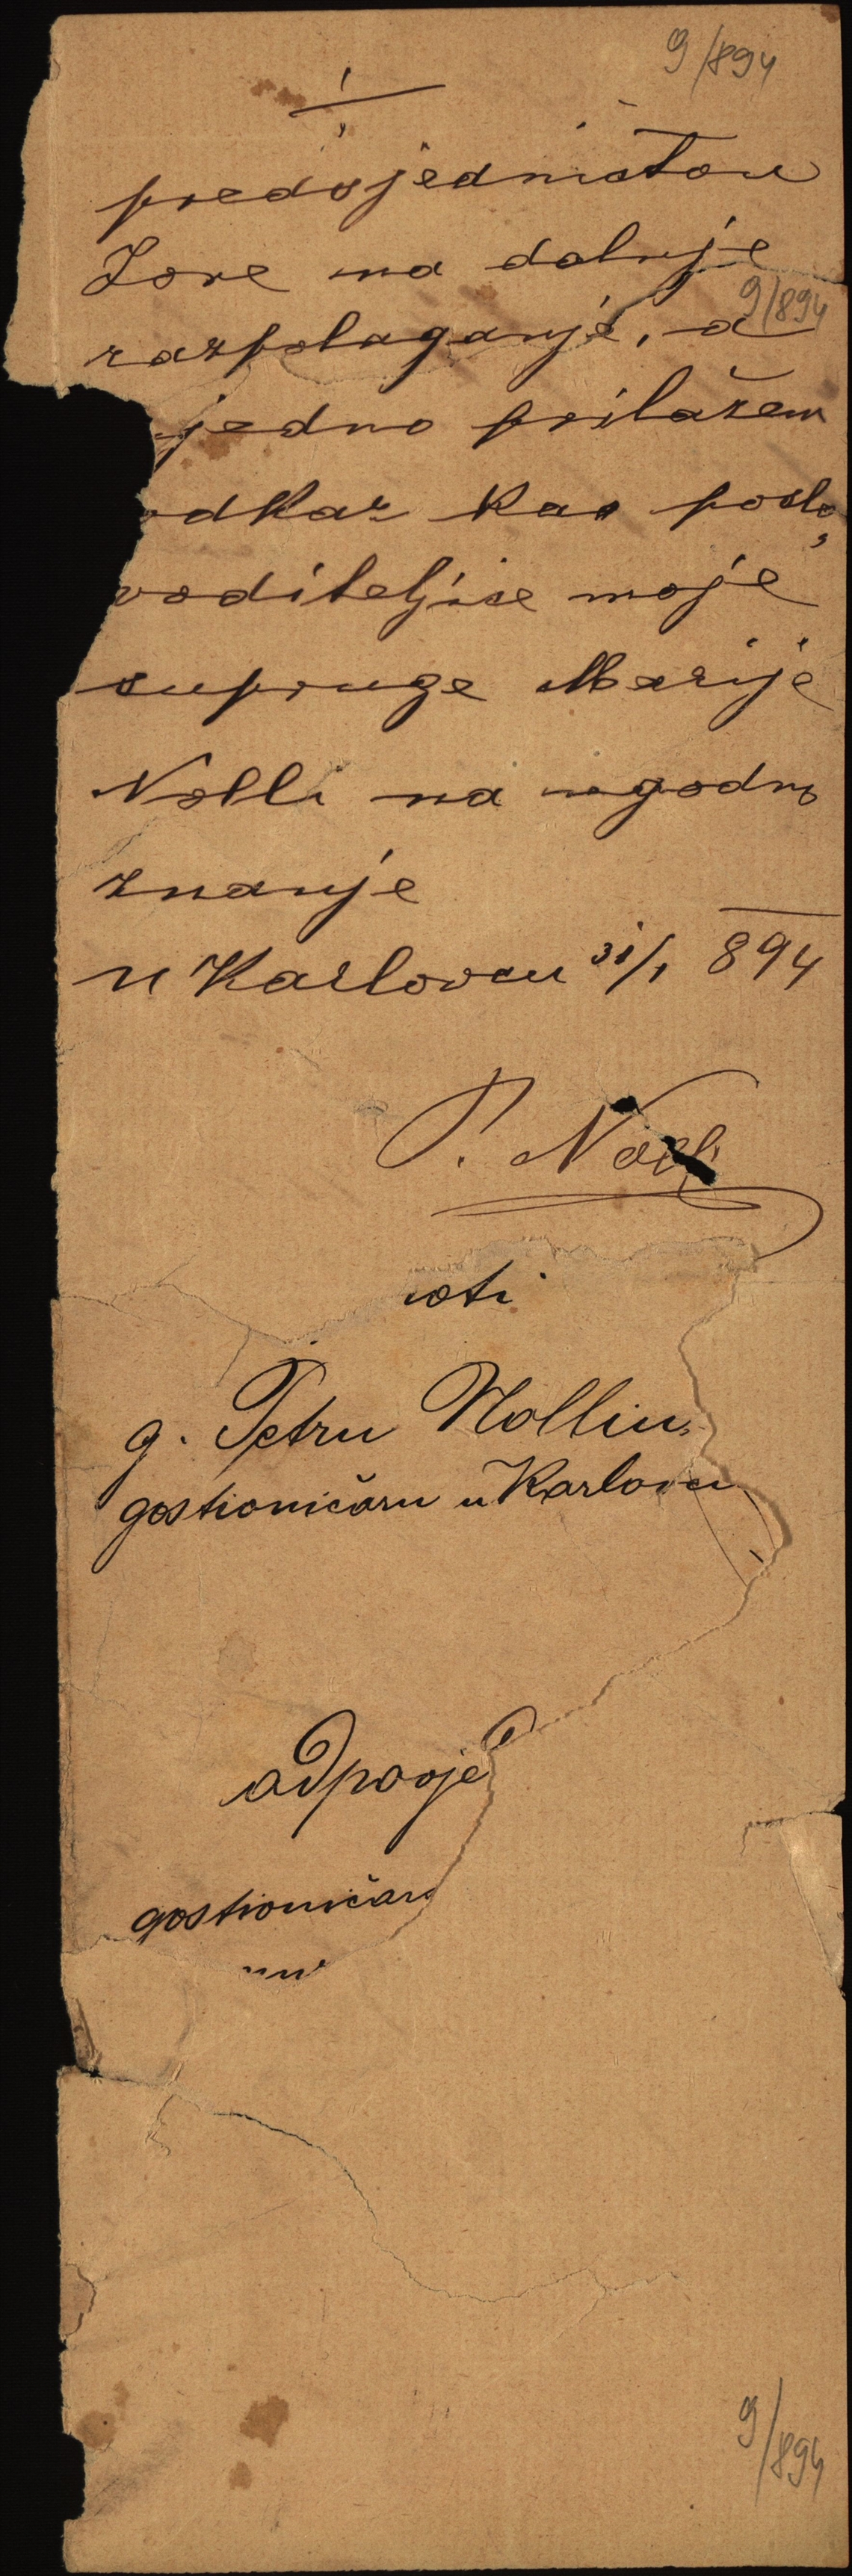 9/894
./.
predsjedničtvu
Zore na dalnje
9/894
razpolaganje, a
jedno prilažem
odkaz kao poslo
voditeljice moje
supruge Marije
Nolli na ugodno
znanje
u Karlovcu 31/1 894
P. Nolli
g. Petru Nolliu,
gostioničaru u Karlovcu
odpovjed
gostioničaru
9/894